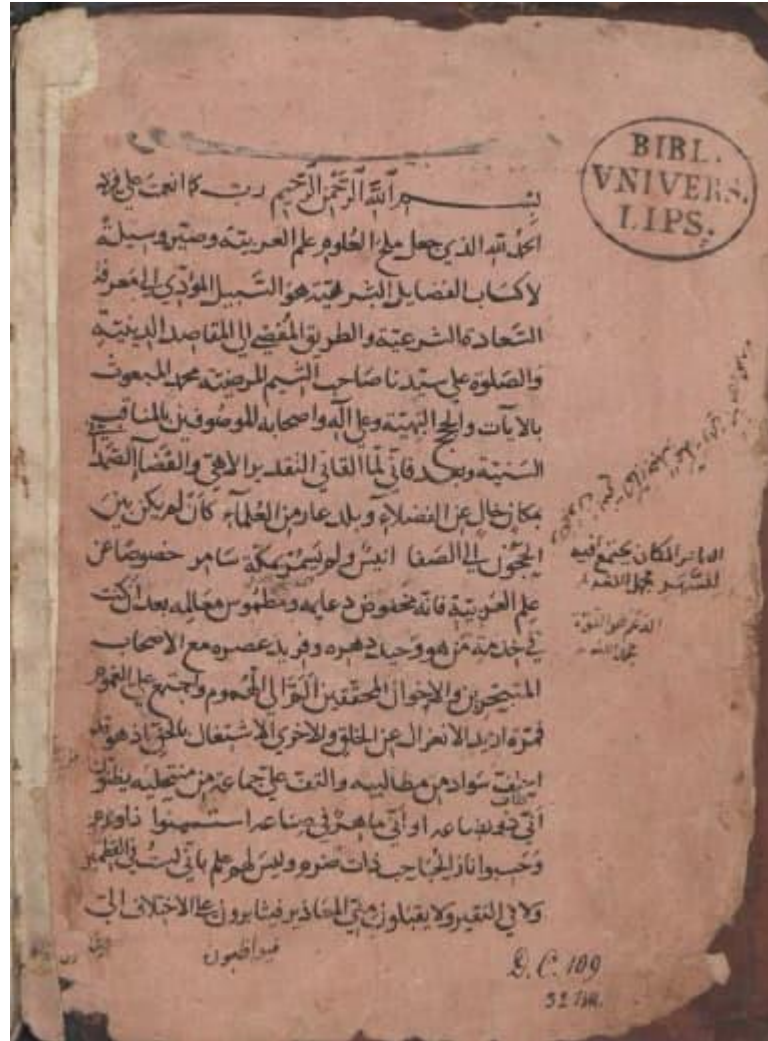 BIBL.
VNIVERS.
LIPS.
بسم الله الرحمن الرحيم رب كما انعمت علي فزد
الحمد لله الذي جعل ملح العلوم علم العربيّة وصيّر وسيلة
لاكتساب الفضايل البشرية هو السّبيل المؤدّي الي معرفة
السّعادة الشرعيّة والطريق المُفضي الي المقاصد الدينيّة
والصّلوة علي سيّدنا صاحب الشيم المرضيّة محمد المبعوث
بالايات والحجج البهيّة وعلي آله واصحابه الموصوفين بالمناقب
السنيّة وبعد فانّي لمّا القاني التقدير الالاهيّ والقضآ الصمدا
مكان خال عن الفضلاء وبلد عار من العُلمآء كأن لم يكن بين
الحجون الي الصفا انيسٌ ولم يسمر بمكة سامر خصوصًا عن
علم العربيّة فانّه مخفوض دعايمه ومطموس معالمه بعد ان كنت
في خدمة من هو وحيد دهره وفريد عصره مع الاصحاب
المتبحّرين والاخوان المحقّقين الي الهموم واجتمع علي الغموم
فمرّة اريد الانعزال عن الخلق والاخري الاشتغال بالحق اذ هو
سواد من مطالبيه والتف عليّ جماعة من منتحليه يظنون
انّي ذو بضاعه او انّي ماهرٌ في صناعه استسمنوا ذا ورم
وحسبوا نار الحُباحب ذات ضرم وليس لهم علم باني لست في القطمير
ولا في النقير ولا يقبلون منّي المحاذير فيثابرون علي الاختلاف الي
فيواظبون
السامر المكان يجتمع فيه
للسّمر مجمل اللغة
مجمل اللغة
D.C. 109